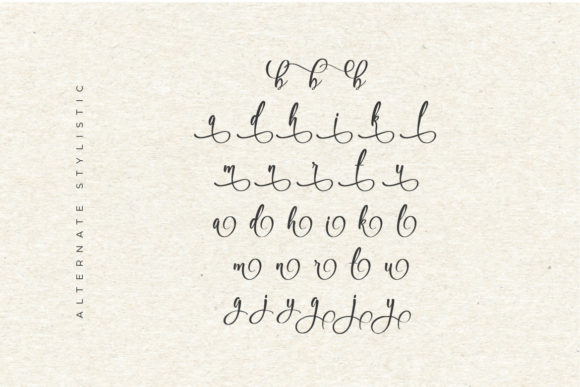 ALTERNATE STYLISTIC
b b b
a d h i k l
m n r t u
a d h i k l
m n r t u
g j y g j y